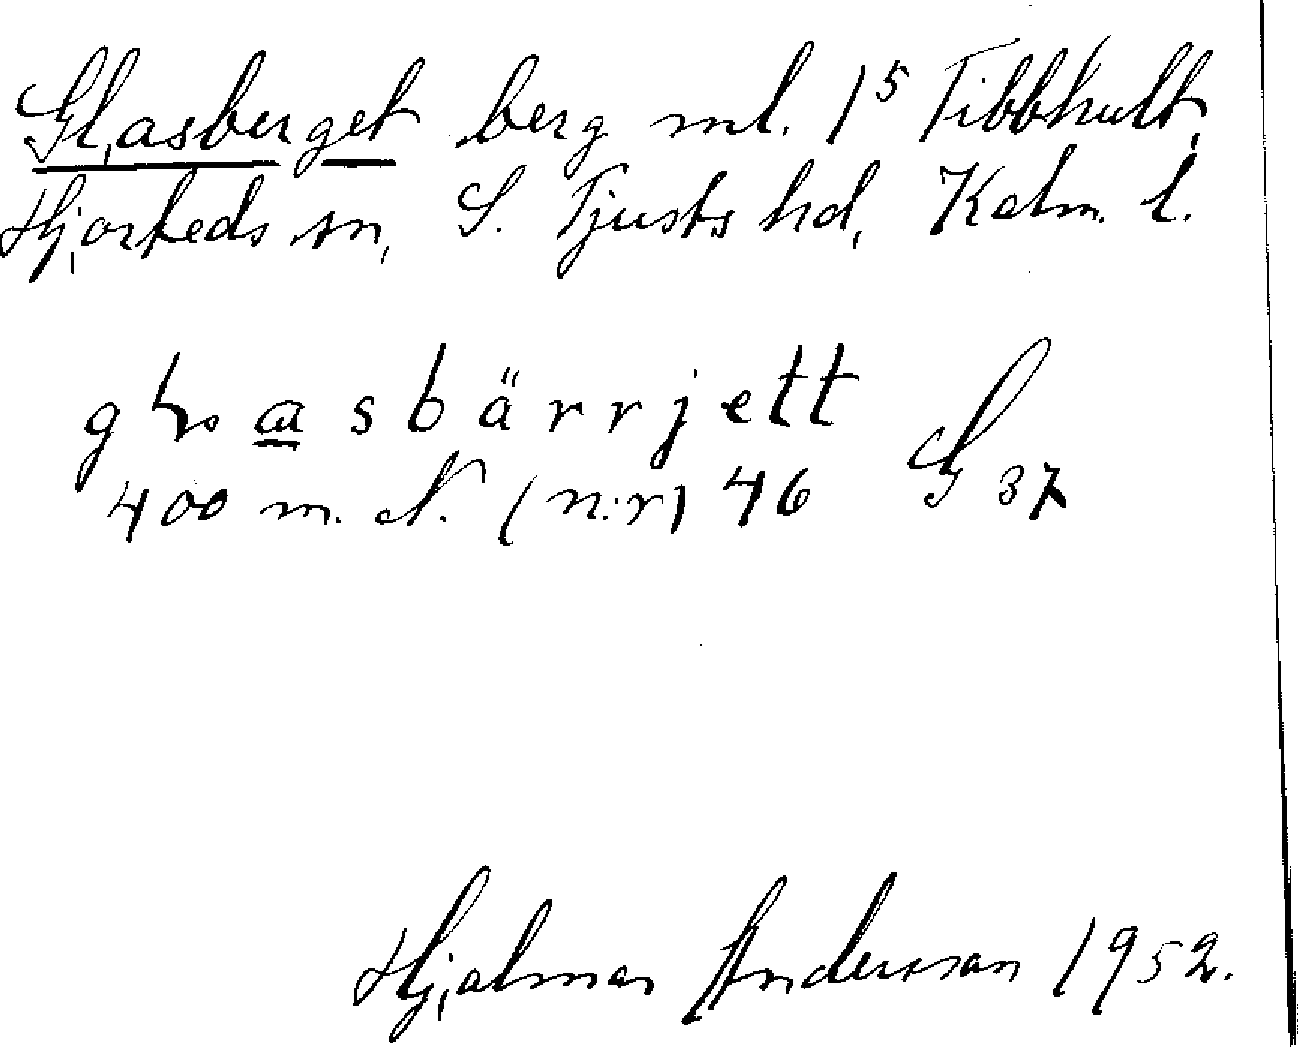 Glasberget berg ml. 1⁵ Tibbhult,
Hjorteds sn, S. Tjusts hd, Kalm. l.
glasbärrjett
400 m. N. (n:r) 46 G 37
Hjalmar Andersson 1952.